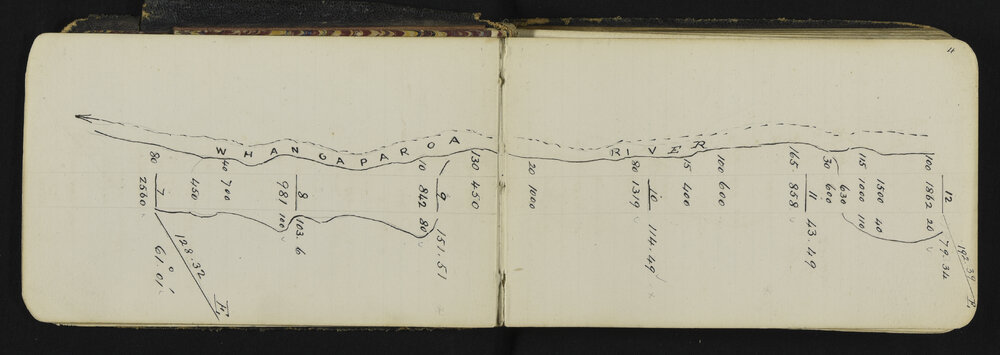 4
WHANGAPAROA RIVER
80 7 2560
128.32
61.01'
T.
450
40 700
8 981 100 103.6
10 9 842 80 151.51
130 450
20 1000
80 10 1319 114.49
15 400
100 600
165 11 858 43.49
30 600 630
115 1000 110
1500 40
12 100 1862 20 79.34
192.39
T.